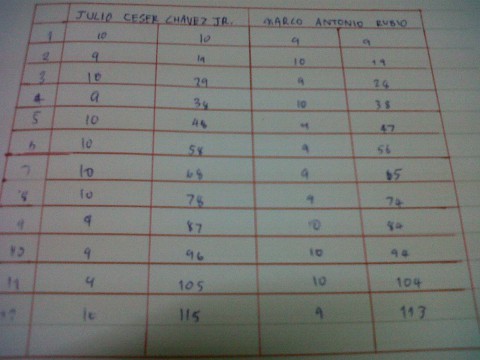 JULIO CESER CHAVEZ JR. MARCO ANTONIO RUBIO
1 10 10 9 9
2 9 19 10 19
3 10 29 9 28
4 9 38 10 38
5 10 48 9 47
6 10 58 9 56
7 10 68 9 65
8 10 78 9 74
9 9 87 10 84
10 9 96 10 94
11 9 105 10 104
10 115 9 113